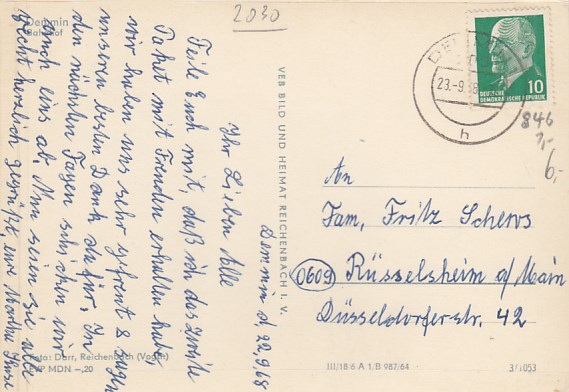 2030
Demmin
Bahnhof
Demmin d, 22.9.68
Ihr Lieben Alle
Teile Euch mit, daß ich das zweite
Paket mit Freuden erhalten habe,
wir haben uns sehr gefreut & sagen
unseren besten Dank dafür. In
den nächsten Tagen schicken wir
auch eins ab. Nun seien sie alle
recht herzlich gegrüßt eure Martha
Foto: Darr, Reichenbach (Vogtl)
EVP MDN -,20
VEB BILD UND HEIMAT REICHENBACH I. V.
DEUTSCHE
DEMOKRATISCHE REPUBLIK
10
23.-9.68
h
846
1,-
6,-
An
Fam, Fritz Scheros
(0609) Rüsselsheim a/Main
Düsseldorferstr. 42
III/18 6 A 1/B 987/64
3/1053